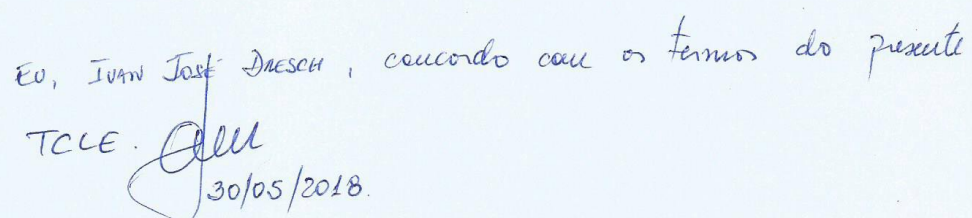 EU, IVAN JOSÉ DRESCH, concordo com os termos do presente
TCLE.
30/05/2018.